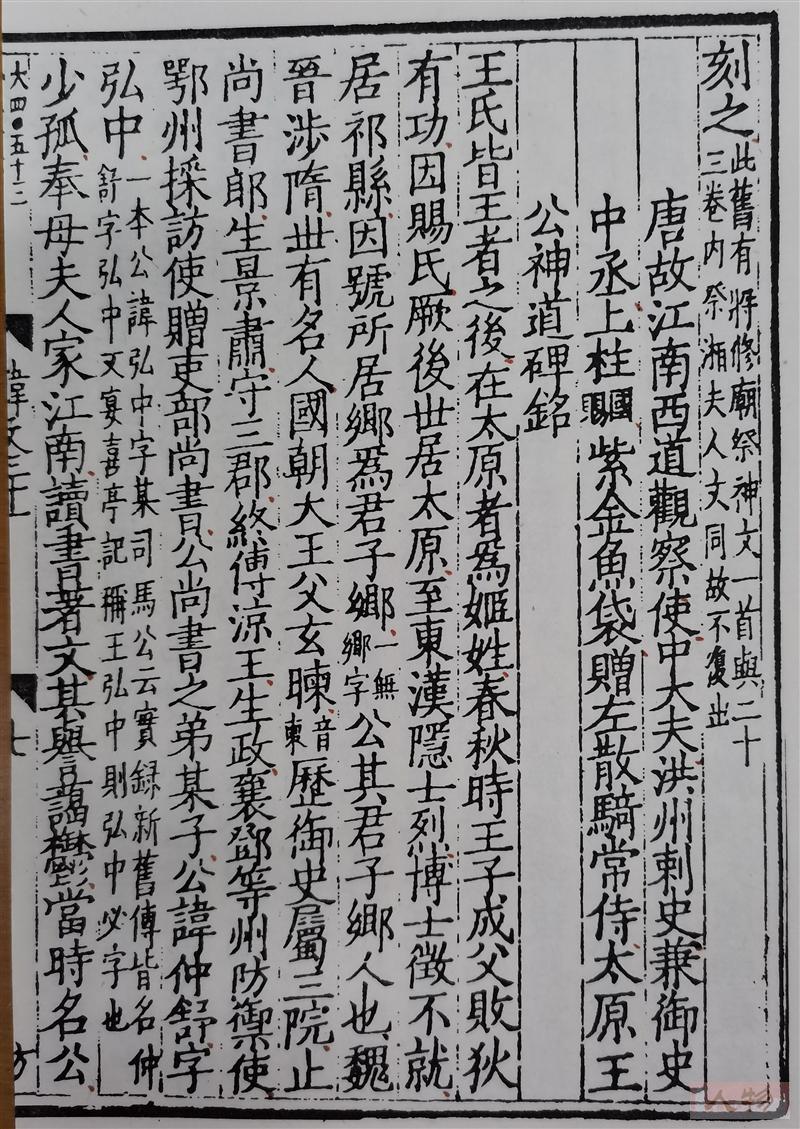 刻之此舊有將修廟祭神文一首與二十
三卷内祭湘夫人文同故不復出
唐故江南西道觀察使中大夫洪州刺史兼御史
中丞上柱國賜紫金魚袋贈左散騎常侍太原王
公神道碑銘
王氏皆王者之後在太原者爲姬姓春秋時王子成父敗狄
有功因賜氏厥後世居太原至東漢隱士烈博士徵不就
居祁縣因號所居鄉爲君子鄉一無鄉字公其君子鄉人也魏
晉涉隋世有名人國朝大王父玄暕音柬歷御史屬三院止
尚書郎生景肅守三郡終傅涼王生政襄鄧等州防禦使
鄂州採訪使贈吏部尚書公尚書之弟某子公諱仲舒字
弘中一本公諱弘中字某司馬公云實録新舊傳皆名仲
舒字弘中文宴喜亭記稱王弘中則弘中必字也
少孤奉母夫人家江南讀書著文其譽藹鬱當時名公
大四·五十二
韋文三十一
七
方
人物